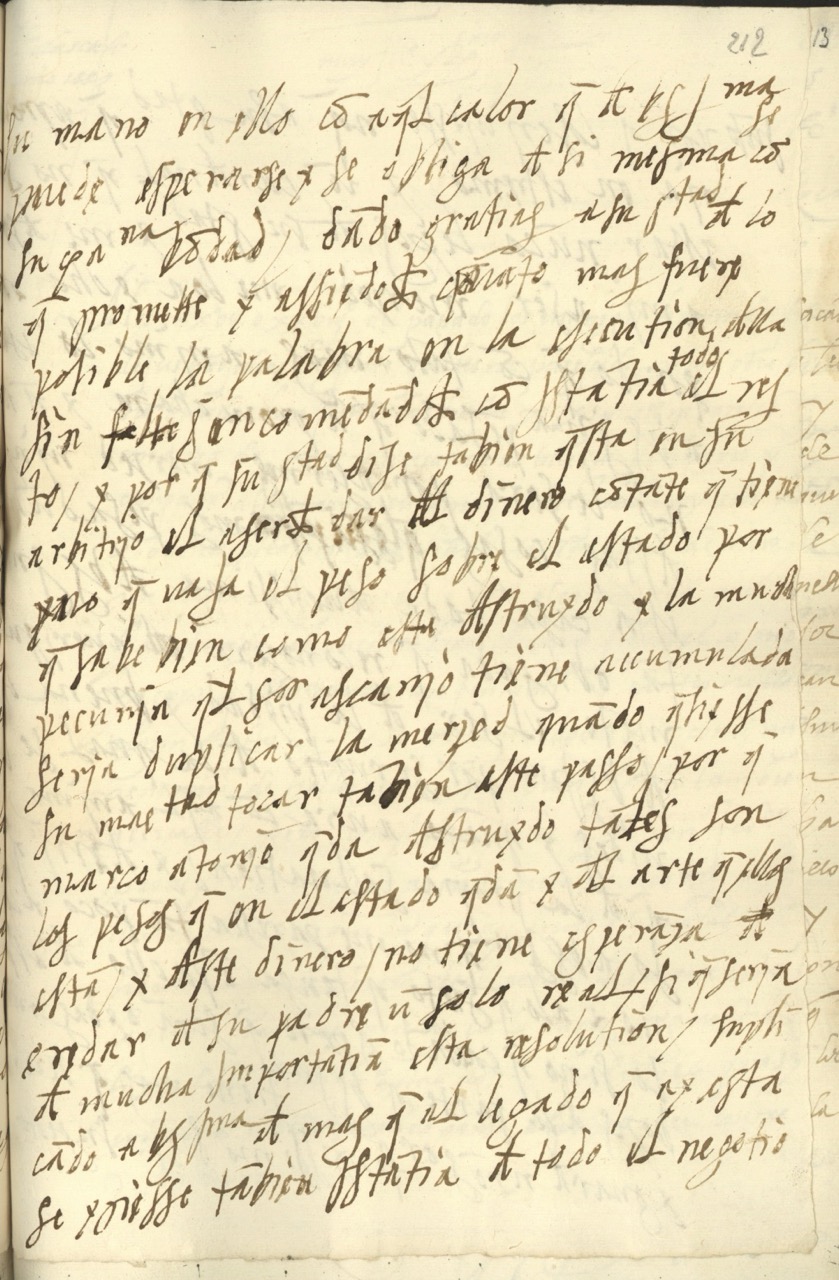 212 13
su mano en ello cõ aq̃l calor q̃ d̃ V S Ill ma
puede esperarse y se obliga d̃ si mesma cõ
su xp̃a na bõdad / dãdo gratias a su S tad d̃ lo
q̃ promette y assiẽdole quãto mas fuere
posible la palabra en la esecution della
sin falta encomẽdãdole cõ Istãtia todo el res
to / y por q̃ su S tad dise tãbien q̃sta en su
arbitrio el aser dar del dinero cõtãte q̃ tiene
pero q̃ vaya el peso sobre el estado por
q̃ sabe bien como esta d̃struydo y la mucha
pecunia q̃l sor ascanio tiene accumulada
seria duplicar la merzed quãdo q̃siesse
su mae tad tocar tãbien este passo / por q̃
marco ãtonio q̃da d̃struydo tales son
los pesos q̃ en el estado q̃dã y del arte q̃ ellos
estã / y d̃ste dinero / no tiene esperãza d̃
eredar d̃ su padre ũ solo real / si q̃ seria
d̃ mucha Importãtia esta resolution / supli
cãdo a V S Ill ma d̃ mas q̃ al legado q̃ ay esta
se xẽsse tãbien Istãtia d̃ todo el negotio